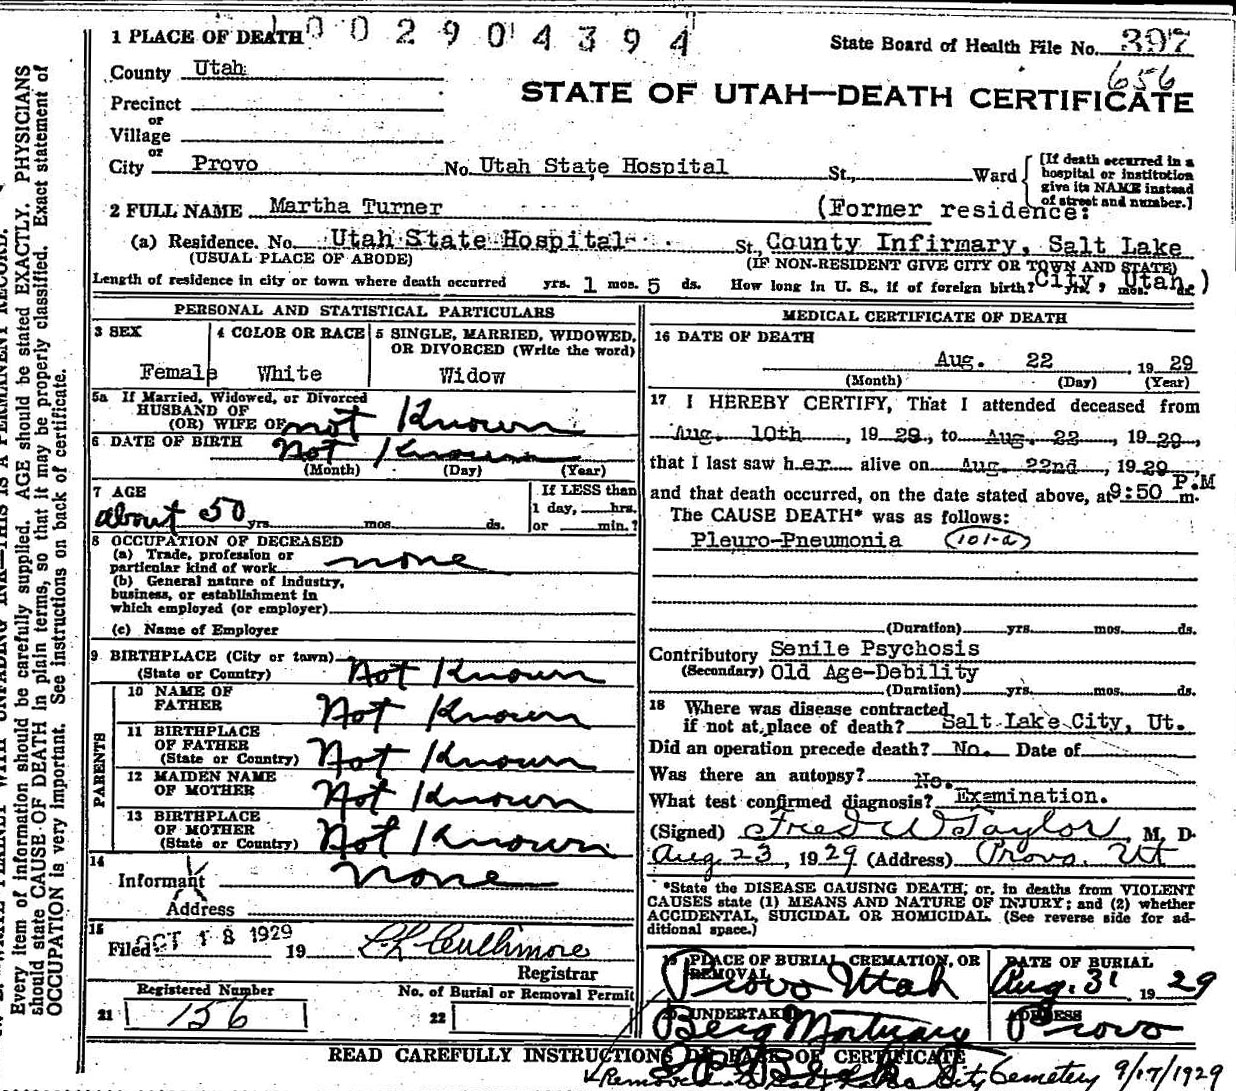 1 PLACE OF DEATH 0 0 2 9 0 4 3 9 4
State Board of Health File No. 397
656
County Utah
STATE OF UTAH—DEATH CERTIFICATE
Precinct
or
Village
or
City Provo No. Utah State Hospital St., Ward
[If death occurred in a hospital or institution give its NAME instead of street and number.]
2 FULL NAME Martha Turner (Former residence:
(a) Residence. No. Utah State Hospital St., County Infirmary, Salt Lake
(USUAL PLACE OF ABODE) (IF NON-RESIDENT GIVE CITY OR TOWN AND STATE)
Length of residence in city or town where death occurred yrs. 1 mos. 5 ds. How long in U. S., if of foreign birth? yrs. mos. ds. City, Utah )
PERSONAL AND STATISTICAL PARTICULARS
3 SEX Female
4 COLOR OR RACE White
5 SINGLE, MARRIED, WIDOWED, OR DIVORCED (Write the word) Widow
5a If Married, Widowed, or Divorced
HUSBAND OF
(OR) WIFE OF not Known
6 DATE OF BIRTH Not Known
(Month) (Day) (Year)
7 AGE
about 50 yrs. mos. ds.
If LESS than
1 day, hrs.
or min.?
8 OCCUPATION OF DECEASED
(a) Trade, profession or
particular kind of work none
(b) General nature of industry,
business, or establishment in
which employed (or employer)
(c) Name of Employer
9 BIRTHPLACE (City or town)
(State or Country) Not Known
PARENTS
10 NAME OF
FATHER Not Known
11 BIRTHPLACE
OF FATHER
(State or Country) Not Known
12 MAIDEN NAME
OF MOTHER Not Known
13 BIRTHPLACE
OF MOTHER
(State or Country) Not Known
14
Informant none
Address
15
Filed OCT 18 1929 19 Registrar
Registered Number
21 156
No. of Burial or Removal Permit
22
MEDICAL CERTIFICATE OF DEATH
16 DATE OF DEATH
Aug. 22, 19 29
(Month) (Day) (Year)
17 I HEREBY CERTIFY, That I attended deceased from
Aug. 10th, 19 29, to Aug. 22, 19 29,
that I last saw her alive on Aug. 22nd, 19 29,
and that death occurred, on the date stated above, at 9:50 P.M m.
The CAUSE DEATH* was as follows:
Pleuro-Pneumonia (101-a)
(Duration) yrs. mos. ds.
Contributory Senile Psychosis
(Secondary) Old Age-Debility
(Duration) yrs. mos. ds.
18 Where was disease contracted
if not at place of death? Salt Lake City, Ut.
Did an operation precede death? No. Date of
Was there an autopsy? No.
What test confirmed diagnosis? Examination.
(Signed) Fred W Taylor, M. D.
Aug 23, 19 29 (Address) Provo. Ut
*State the DISEASE CAUSING DEATH, or, in deaths from VIOLENT
CAUSES state (1) MEANS AND NATURE OF INJURY; and (2) whether
ACCIDENTAL, SUICIDAL OR HOMICIDAL. (See reverse side for ad-
ditional space.)
PLACE OF BURIAL, CREMATION, OR
REMOVAL
Provo Utah
DATE OF BURIAL
Aug. 31, 19 29
UNDERTAKER
Berg Mortuary
ADDRESS
Provo
READ CAREFULLY INSTRUCTIONS ON BACK OF CERTIFICATE
City Cemetery 9/17/1929
Every item of information should be carefully supplied. AGE should be stated EXACTLY. PHYSICIANS
should state CAUSE OF DEATH in plain terms, so that it may be properly classified. Exact statement of
OCCUPATION is very important. See instructions on back of certificate.